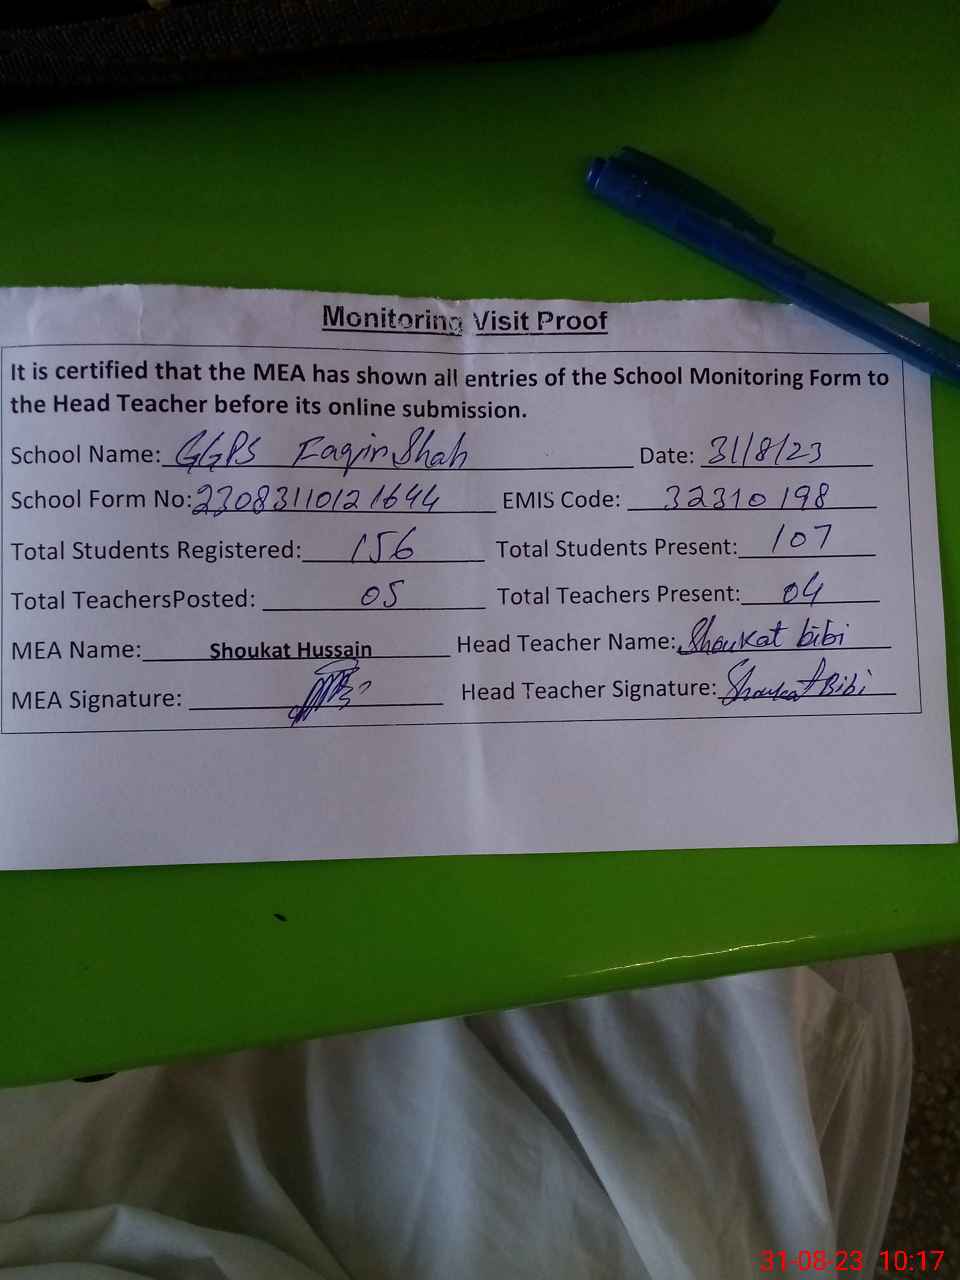 Monitoring Visit Proof
It is certified that the MEA has shown all entries of the School Monitoring Form to
the Head Teacher before its online submission.
School Name: GGPS Faqir Shah Date: 31/8/23
School Form No: 23083110121644 EMIS Code: 32310198
Total Students Registered: 156 Total Students Present: 107
Total TeachersPosted: 05 Total Teachers Present: 04
MEA Name: Shoukat Hussain Head Teacher Name: Shoukat bibi
MEA Signature: Head Teacher Signature: Shoukat Bibi
31-08-23 10:17